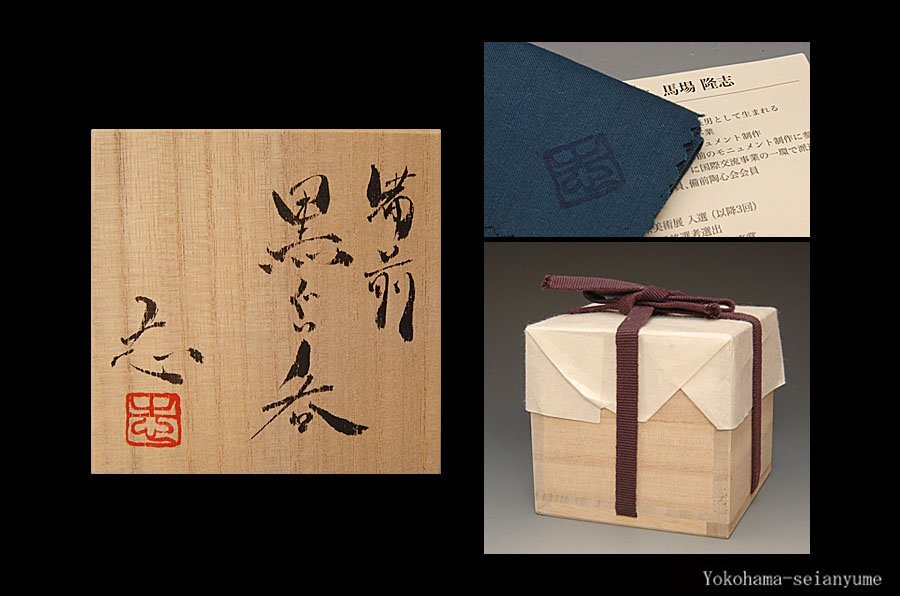 備前
黒ぐい呑
志
志
馬場 隆志
男として生まれる
業
ュメント制作
前のモニュメント制作に参
に国際交流事業の一環で派
員、備前陶心会会員
美術展 入選 (以降3回)
選者選出
志
Yokohama-seianyume